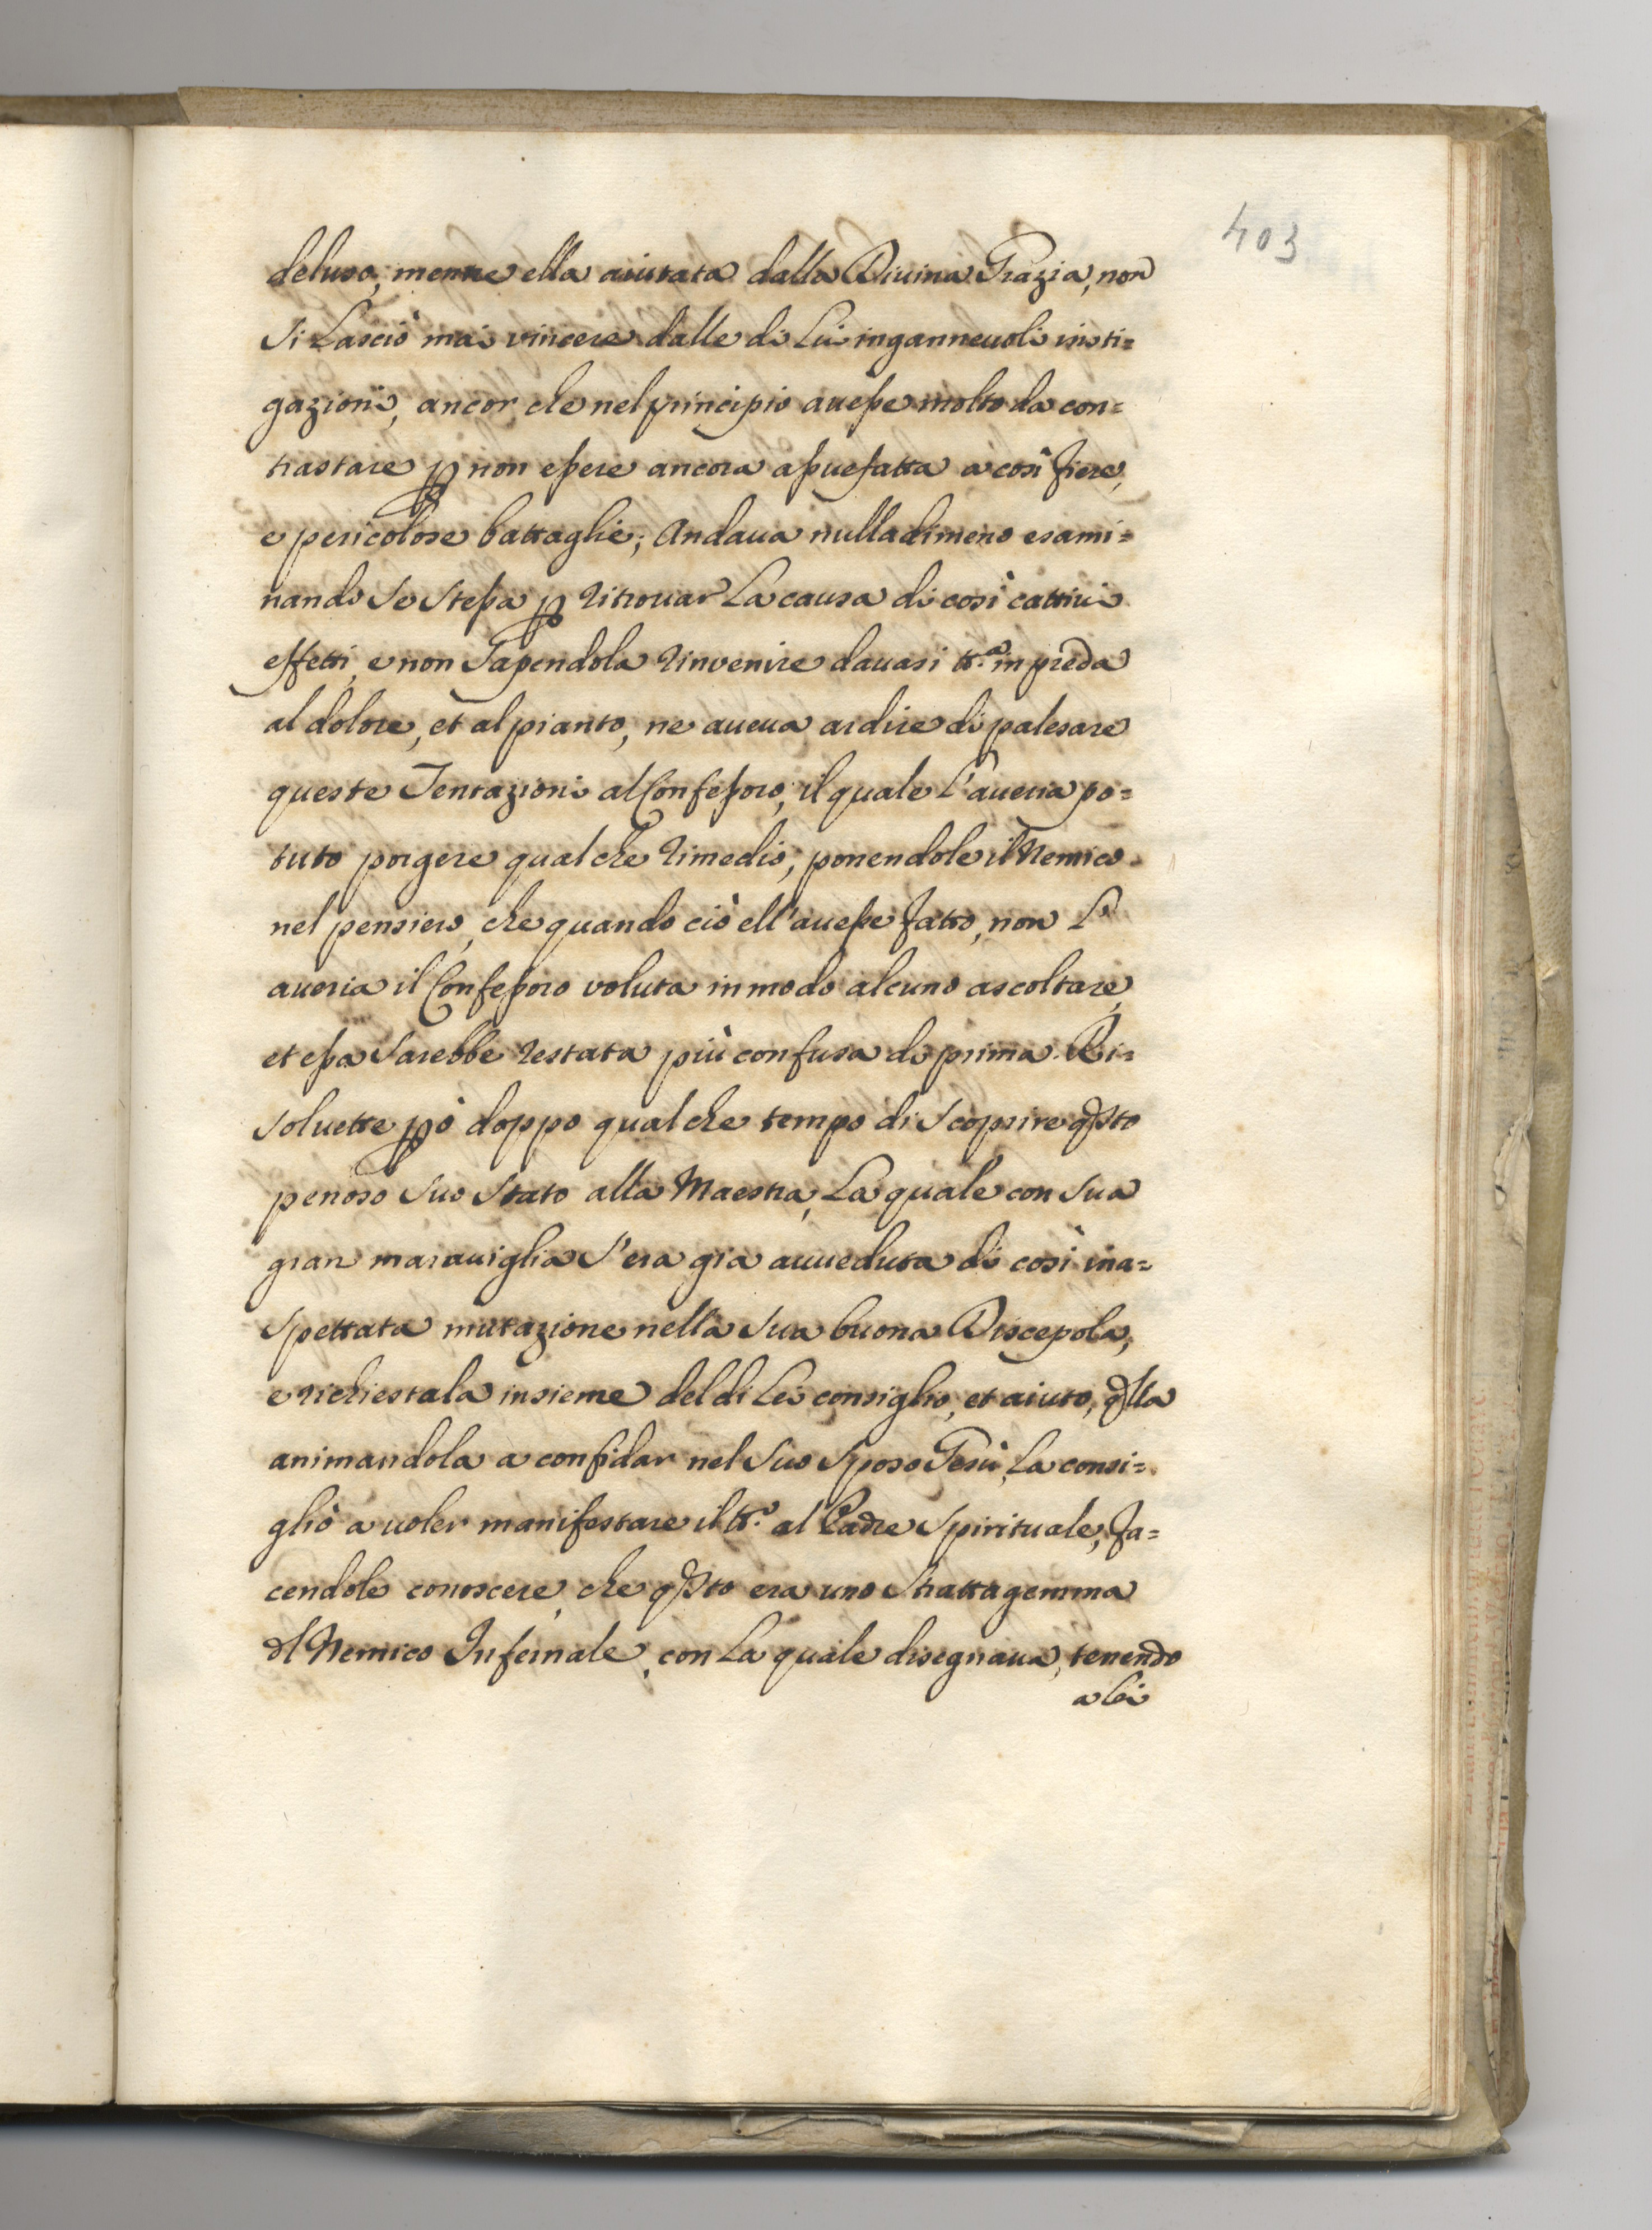 403
deluso, mentre ella aiutata dalla Diuina Grazia, non
si Lasciò mai vincere dalle di Lui ingannevoli insti=
gazioni, ancor che nel principio auesse molto da con=
trastare p non essere ancora assuefatta a così fiere,
e pericolose battaglie; Andaua nulladimeno esami=
nando se stessa p ritrouar La causa di così cattiui
effetti, e non Sapendola rinvenire dauasi tt.a in preda
al dolore, et al pianto, ne aueua ardire di palesare
queste Tentazioni al Confessoro, il quale L'aueria po=
tuto porgere qualche rimedio, ponendole il Nemico
nel pensiero, che quando ciò ell'auesse fatto, non L'
aueria il Confessoro voluta in modo alcuno ascoltare,
et essa sarebbe restata più confusa di prima. Ri=
soluette pò doppo qualche tempo di scoprire qsto
penoso suo stato alla Maestra, La quale con sua
gran marauiglia s'era gia auueduta di così ina=
spettata mutazione nella sua buona Discepola,
e richiestala insieme del di Lei consiglio, et aiuto, qlla
animandola a confidar nel suo sposo Gesù, La consi=
gliò a uoler manifestare il tt.o al Padre spirituale, fa=
cendole conoscere, che qsto era uno strattagemma
dl Nemico Infernale, con La quale disegnaua, tenendo
a lei